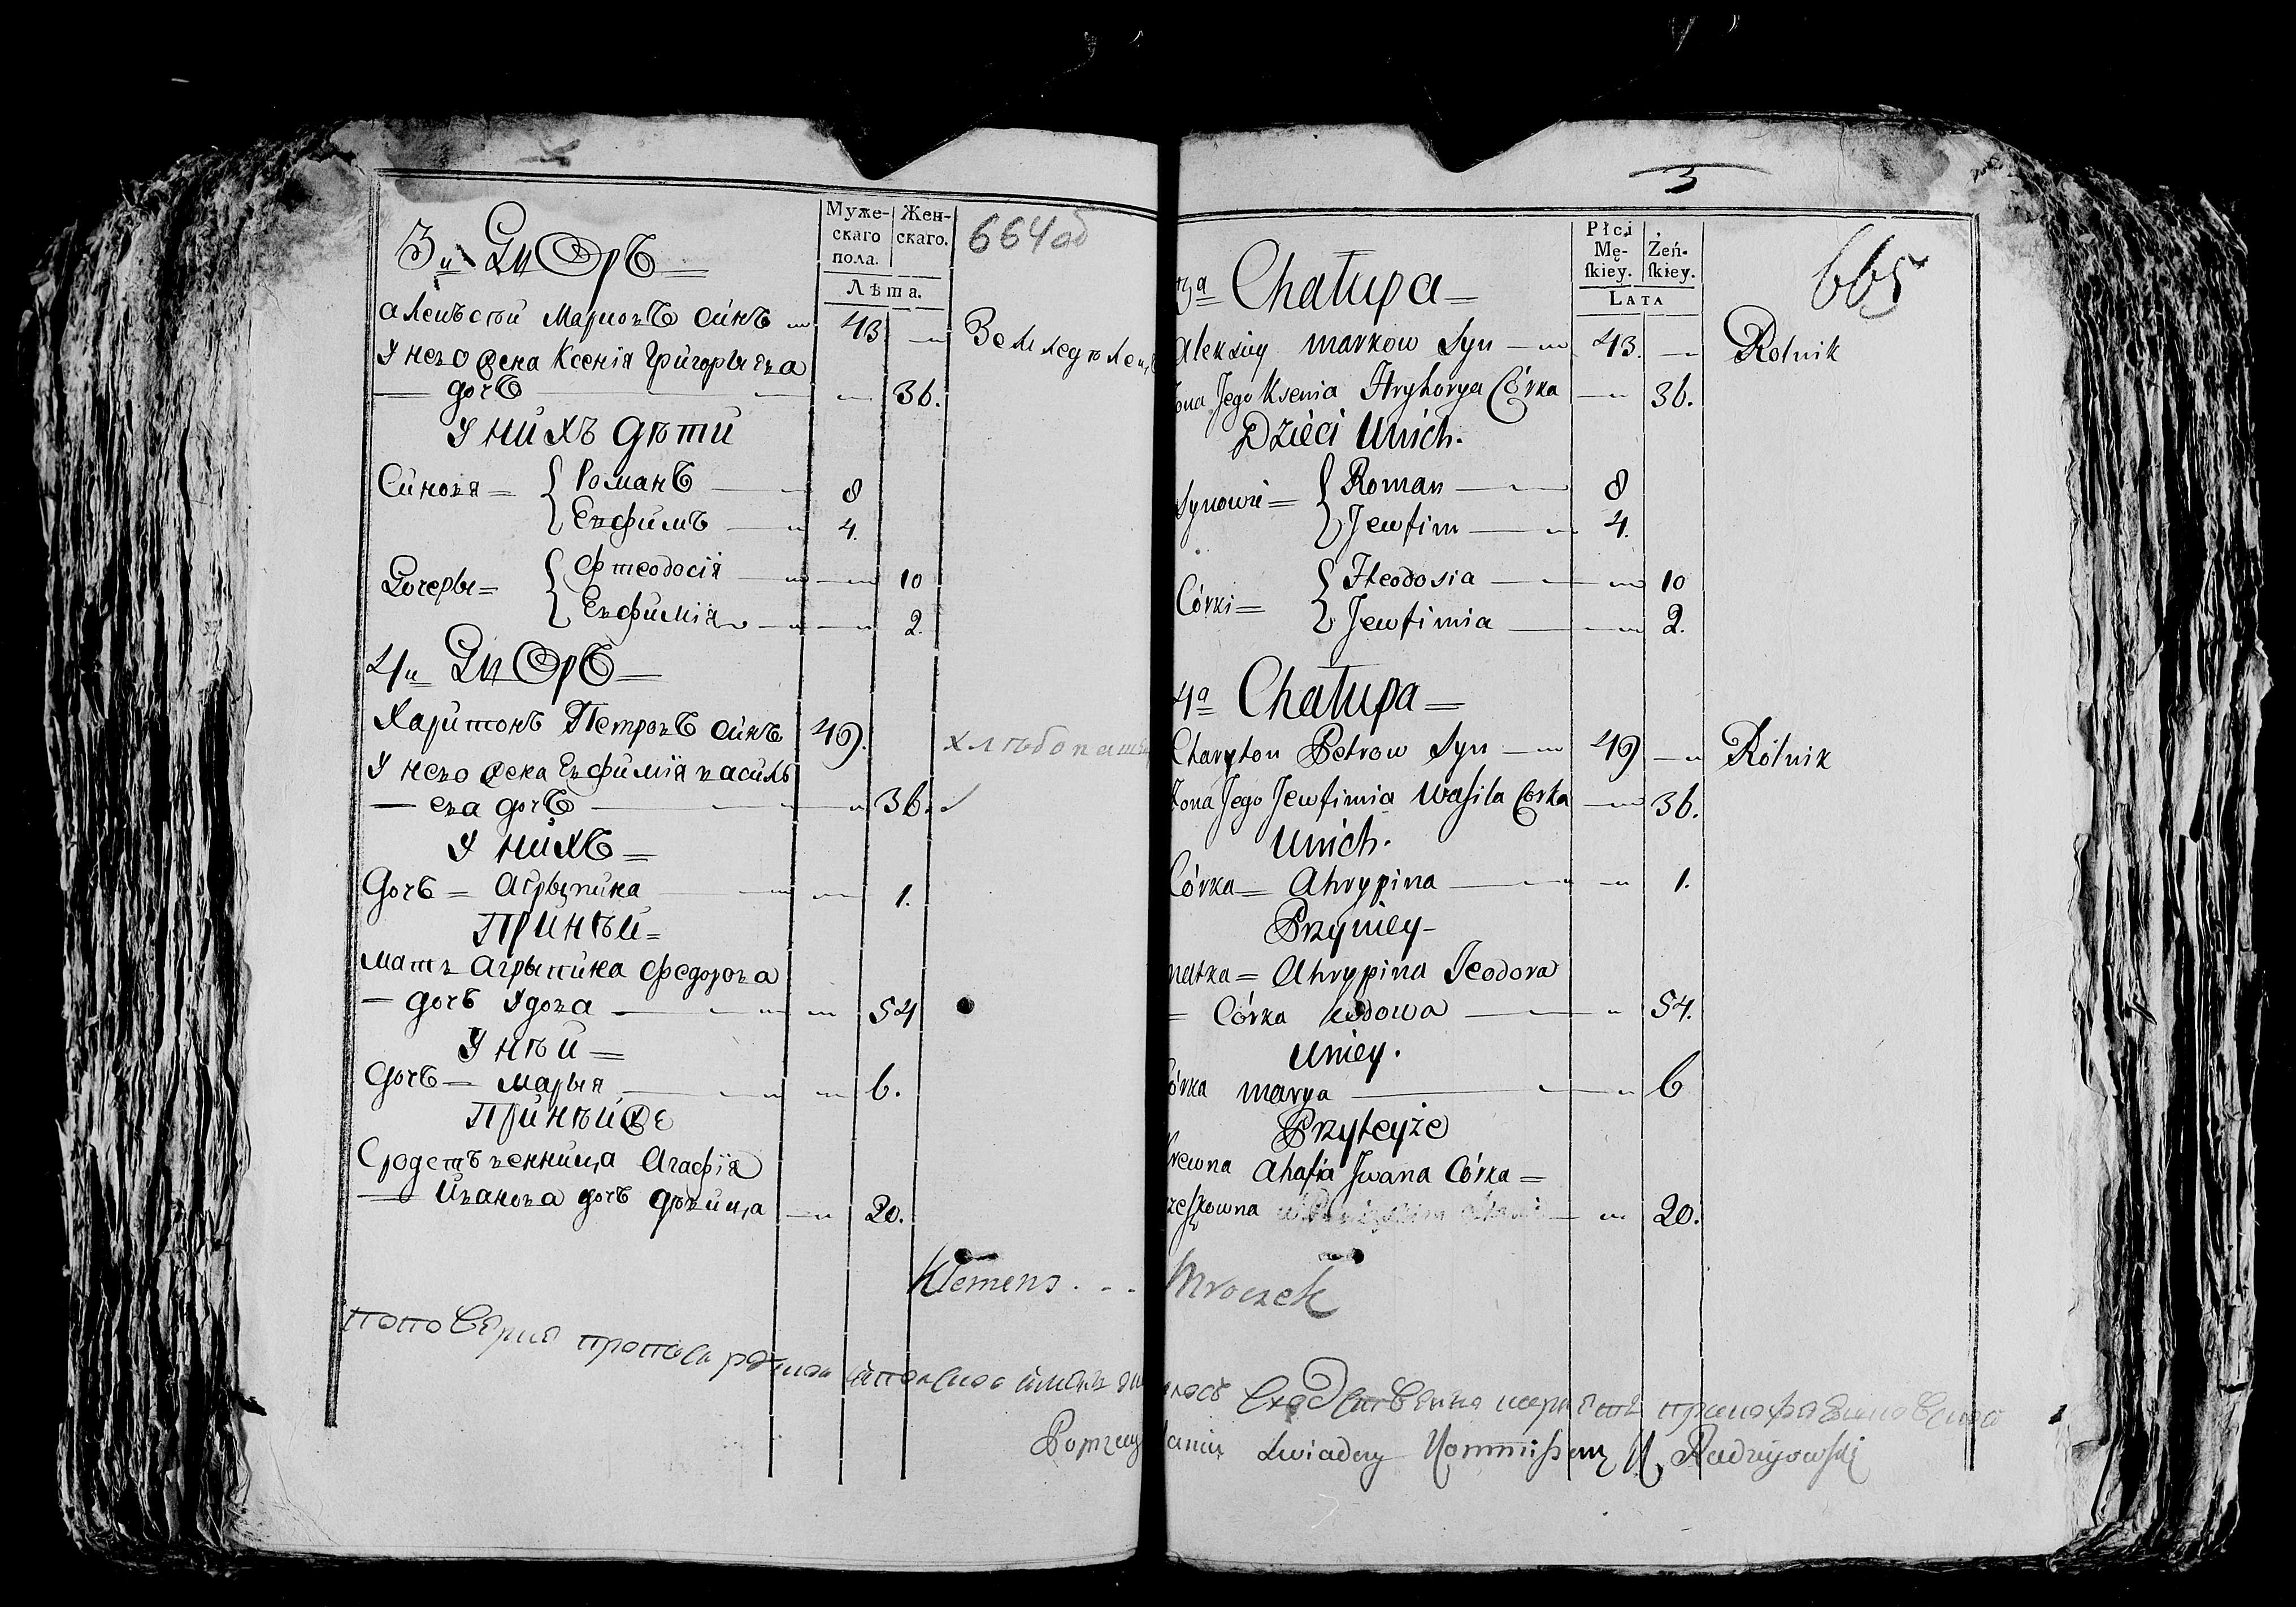 Муже-
скаго
пола.
Жен-
скаго.
Лѣта.
664 об
3й Дворъ
Алексѣй Марковъ синъ 43 Земледѣлецъ
У него жена Ксенія Григорьева
дочъ 36.
У нихъ дѣти
Синовя = Романъ 8
Евфимъ 4.
Дочеры = Фтеодосія 10
Евфимія 2.
4й Дворъ
Харитонъ Петровъ синъ 49. хлѣбопаш
У него жена Евфимія василь
ева дочъ 36.
У нихъ =
Дочъ = Агрыпина 1.
При нѣй =
Мать Агрыпина Федорова
дочъ Удова 54
У нѣй =
Дочъ = Марыя 6.
При нѣй же
Сродстъвенница Агафія
Иванова дочъ дѣвица 20.
Klemens . . .
3
665
Płci
Mę-
ſkiey.
Żeń-
ſkiey.
Lata
3a Chałupa =
Alexiey Markow Syn 43. Rolnik
Żona Jego Ksenia Hryhorya Córka 36.
Dzieci Unich.
Synowie = Roman 8
Jewfim 4.
Córki = Fteodosia 10
Jewfimia 2.
4a Chałupa =
Charyton Petrow Syn 49 Rólnik
Żona Jego Jewfimia Wasila Corka 36.
Unich.
Córka = Ahrypina 1.
Przyniey =
Matka = Ahrypina Feodora
= Córka Wdowa 54.
Uniey.
Córka Marya 6
Przyteyże
Krewna Ahafia Jwana Córka =
20.
Mroczek
Kommissarz Radzijowski